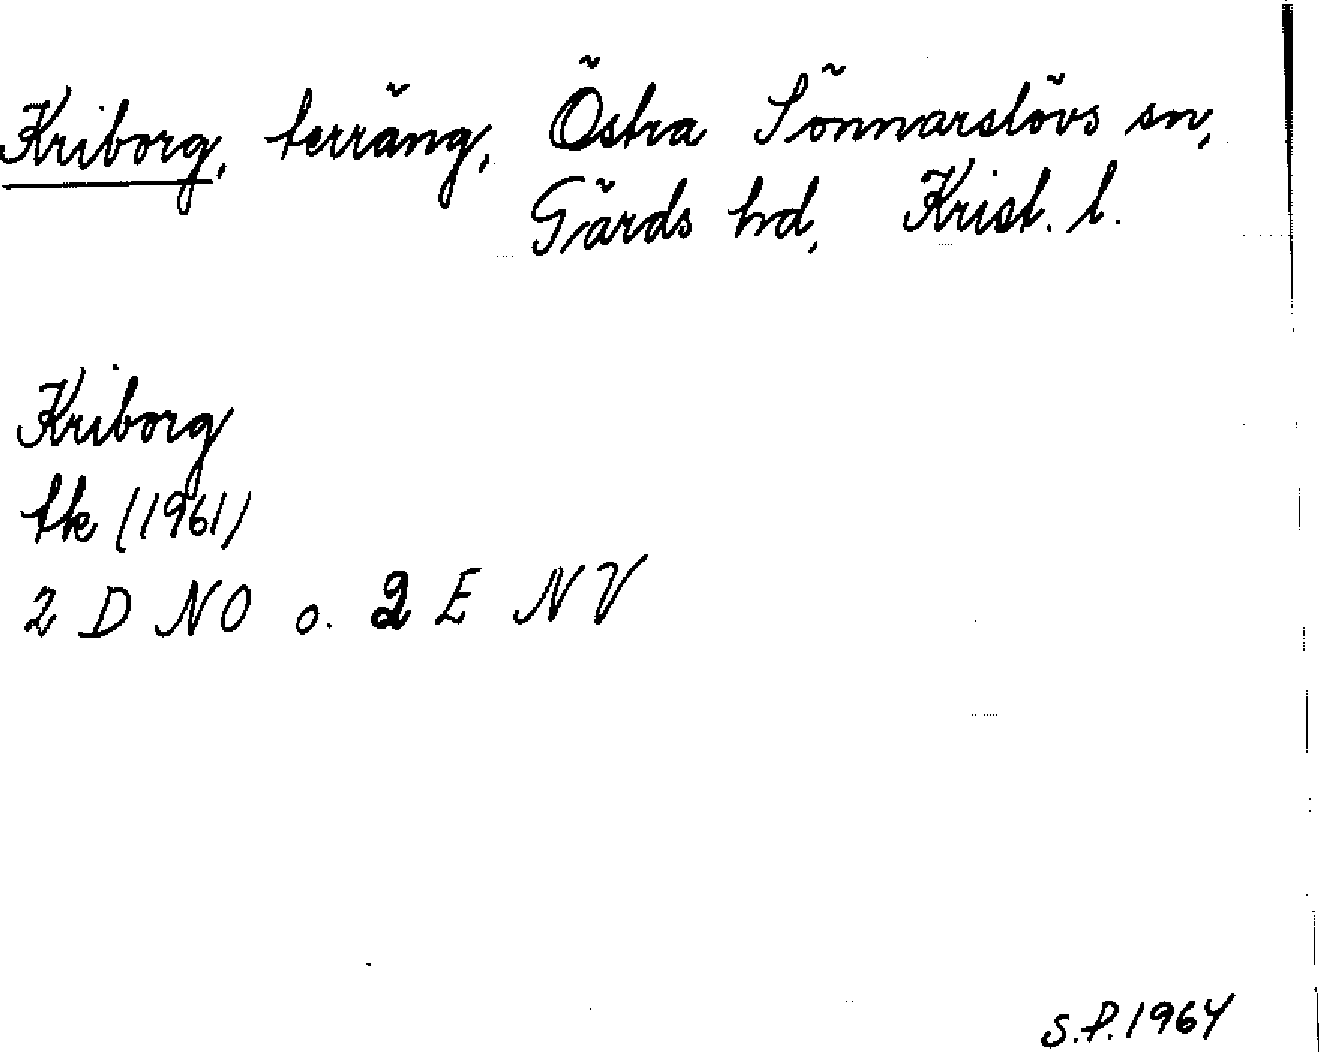 Kriborg, terräng, Östra Sönnarslövs sn,
Gärds hd, Krist. l.
Kriborg
tk (1961)
2 D NO o. 2 E NV
S.P. 1964